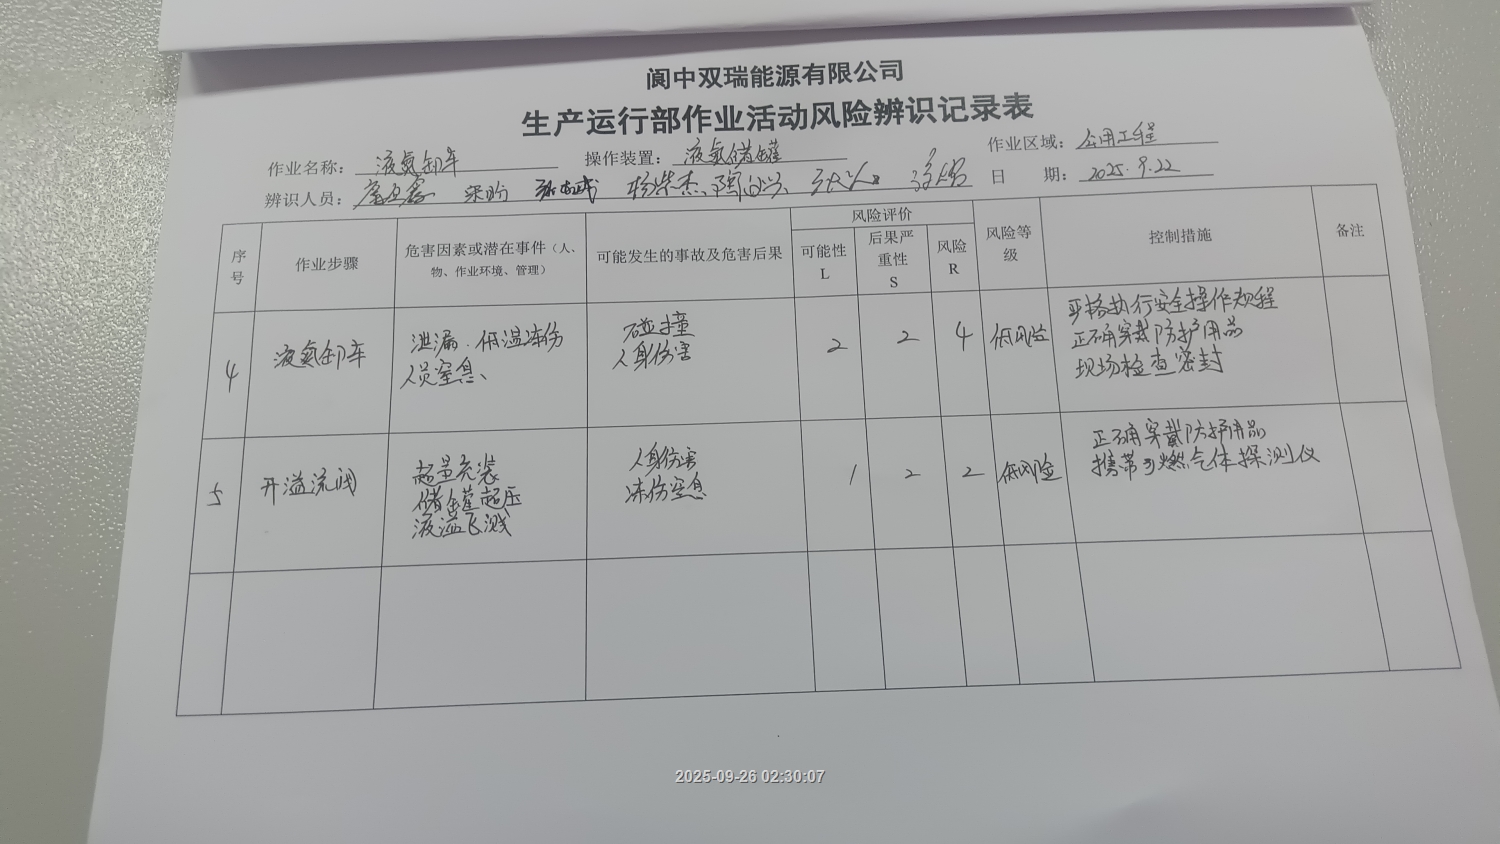 阆中双瑞能源有限公司
生产运行部作业活动风险辨识记录表
作业名称： 液氮卸车 操作装置： 液氮储罐 作业区域： 公用工程
辨识人员： 梁盼 杨荣杰 日 期： 2025.9.22
序号 作业步骤 危害因素或潜在事件（人、物、作业环境、管理） 可能发生的事故及危害后果 风险评价 可能性 L 后果严重性 S 风险 R 风险等级 控制措施 备注
4 液氮卸车 泄漏.低温冻伤 碰撞 2 2 4 低风险 严格执行安全操作规程
人员窒息、 人身伤害 正确穿戴防护用品
现场检查密封
5 开溢流阀 超量充装 人身伤害 1 2 2 低风险 正确穿戴防护用品
储罐超压 冻伤窒息 携带可燃气体探测仪
液溢飞溅
2025-09-26 02:30:07